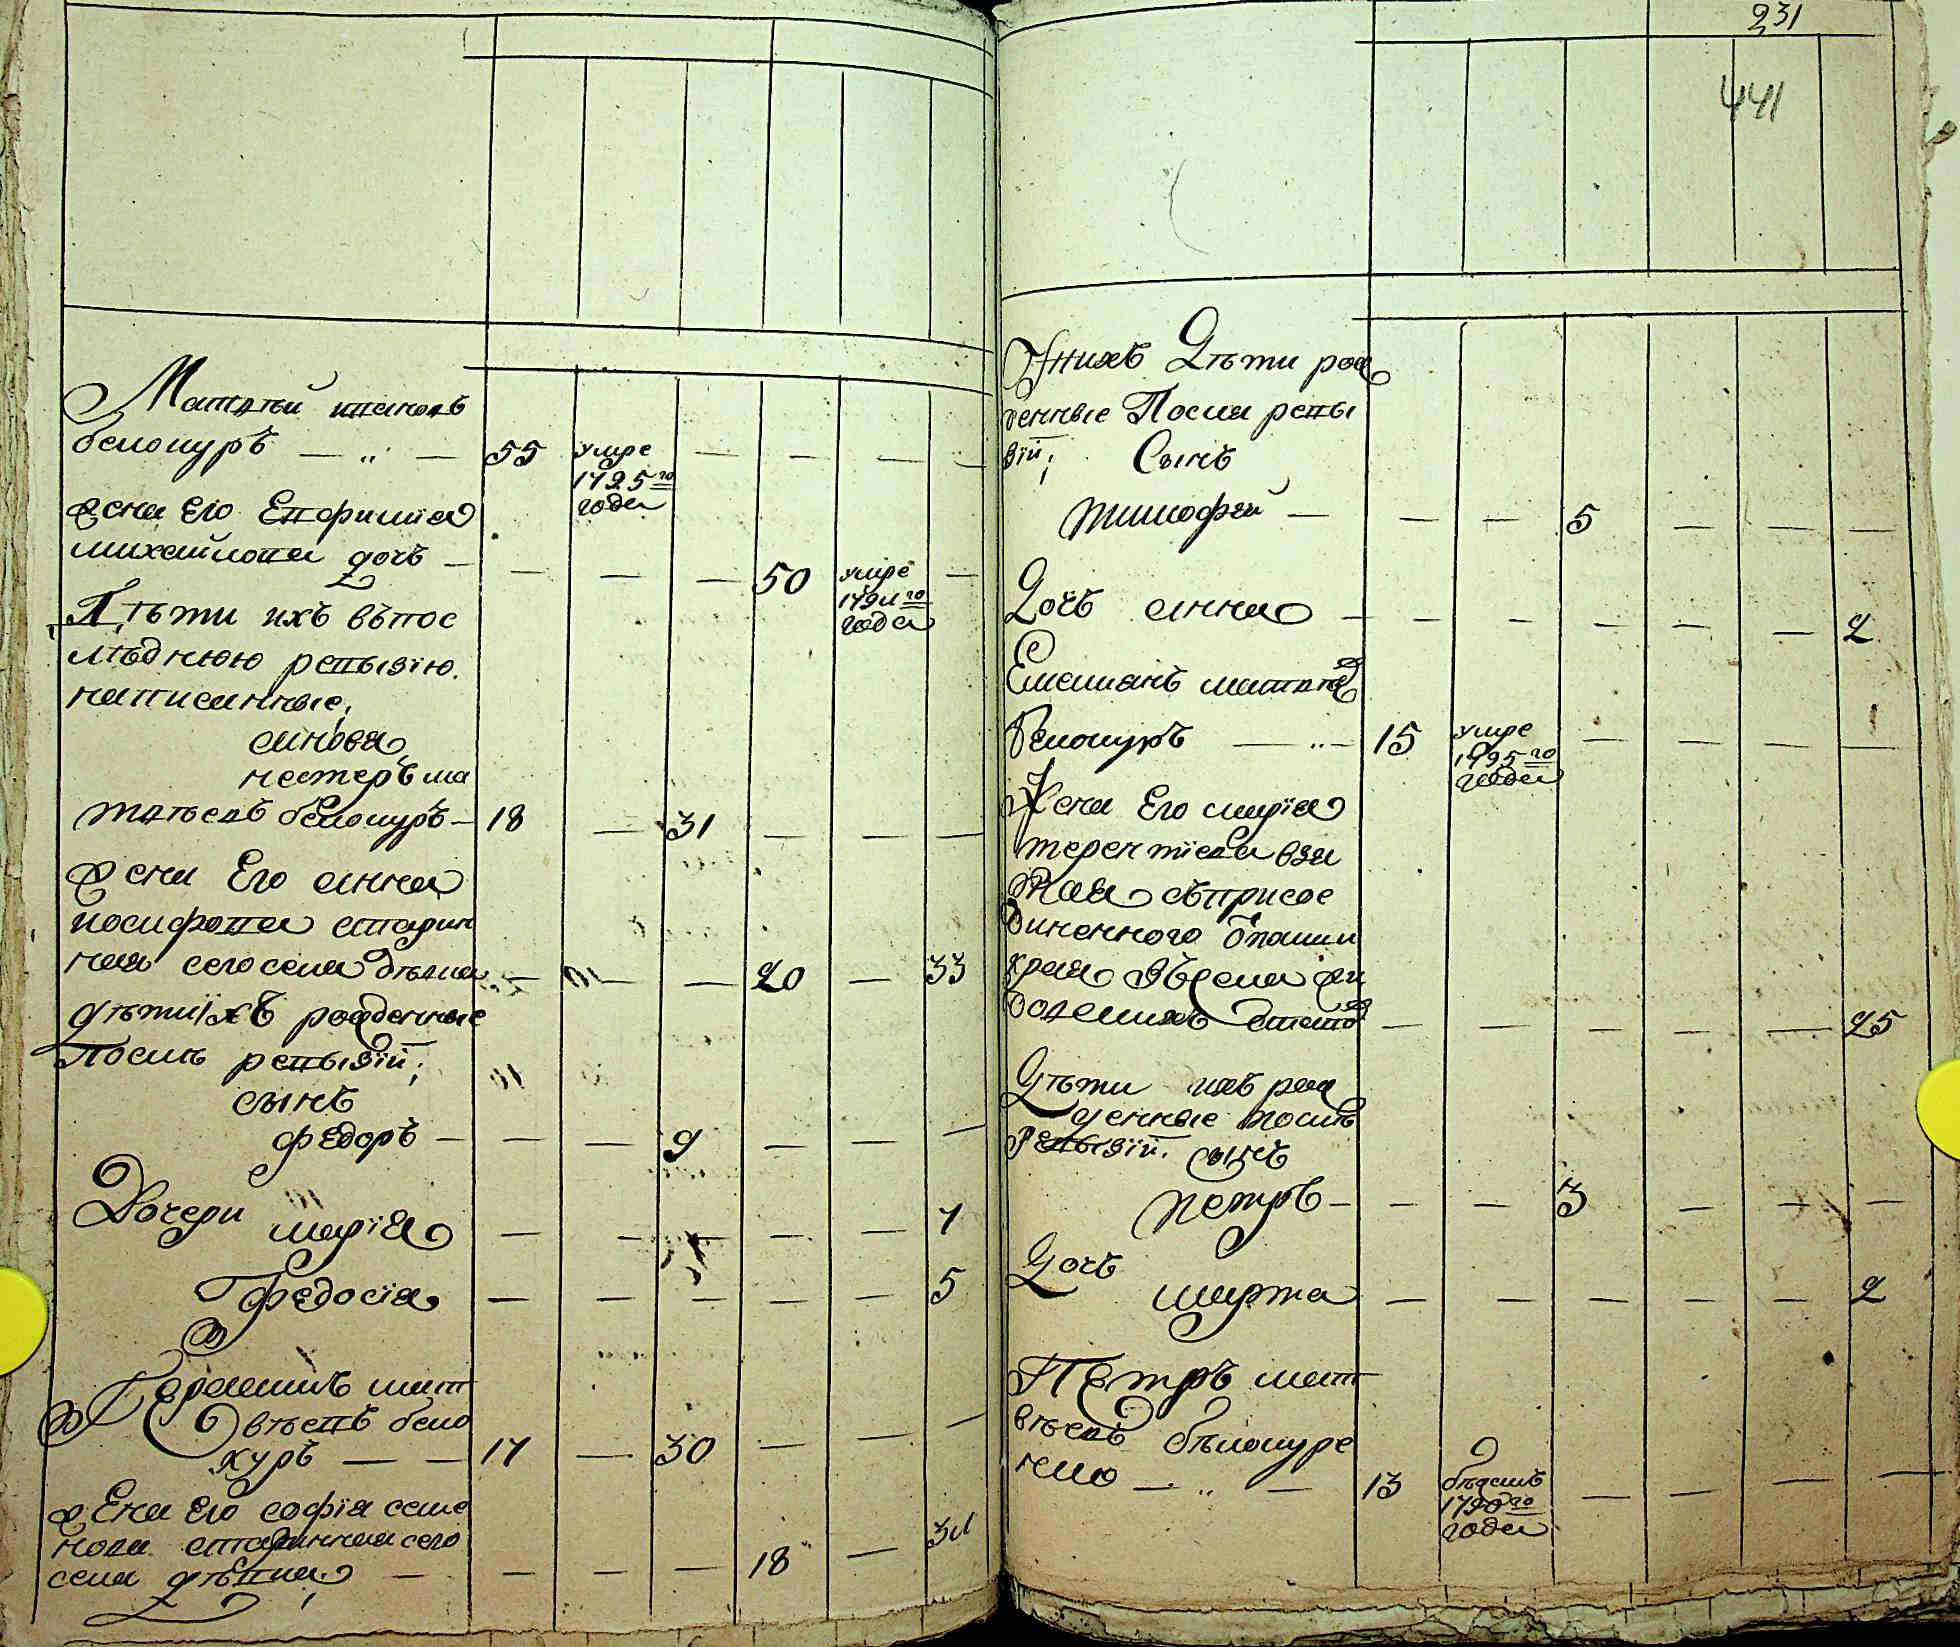 Матвѣй ивановъ
белокуръ — „ — 55 умре — — — —
1795го
года
жена Его Евфимия
михайлова дочь — — — — 50 умре —
1794го
года
Дѣти ихъ въпос
лѣднюю ревызїю
написанные,
синовя
нестеръ ма
твѣевъ белокуръ — 18 — 31 — — —
жена Его анна
иосифова старин
ная сегосела дѣвка — — — 20 — 33
дѣтиїхъ рожденные
Послѣ ревызїй;
сынъ
федоръ — — — 9 — — —
Дочери марїя — — — — — 7
Федосїя — — — — — 5
Герасимъ мат
вѣевъ бело
куръ — — 17 — 30 — — —
жена Его софїя семе
нова старинная сего
села дѣвка — — — — 18 — 34
231
441
Унихъ Дѣти рож
денные Посля ревы
зїй; Сынъ
тимофей — — — 5 — — —
Дочь анна — — — — — — 2
Емелиянъ матвѣев
белокуръ — „ — 15 умре — — — —
1795го
года
Жена Его марїя
терентїева взя
тая съприсое
диненного
края
— — — — — 25
Дѣти ихъ рож
денные послѣ
Ревызїй. сынъ
Петръ — — — 3 — — —
Дочь
марта — — — — — 2
Петръ мат
вѣевъ бѣлокуре
нко — „ — 13 бѣжалъ — — — —
1790го
года